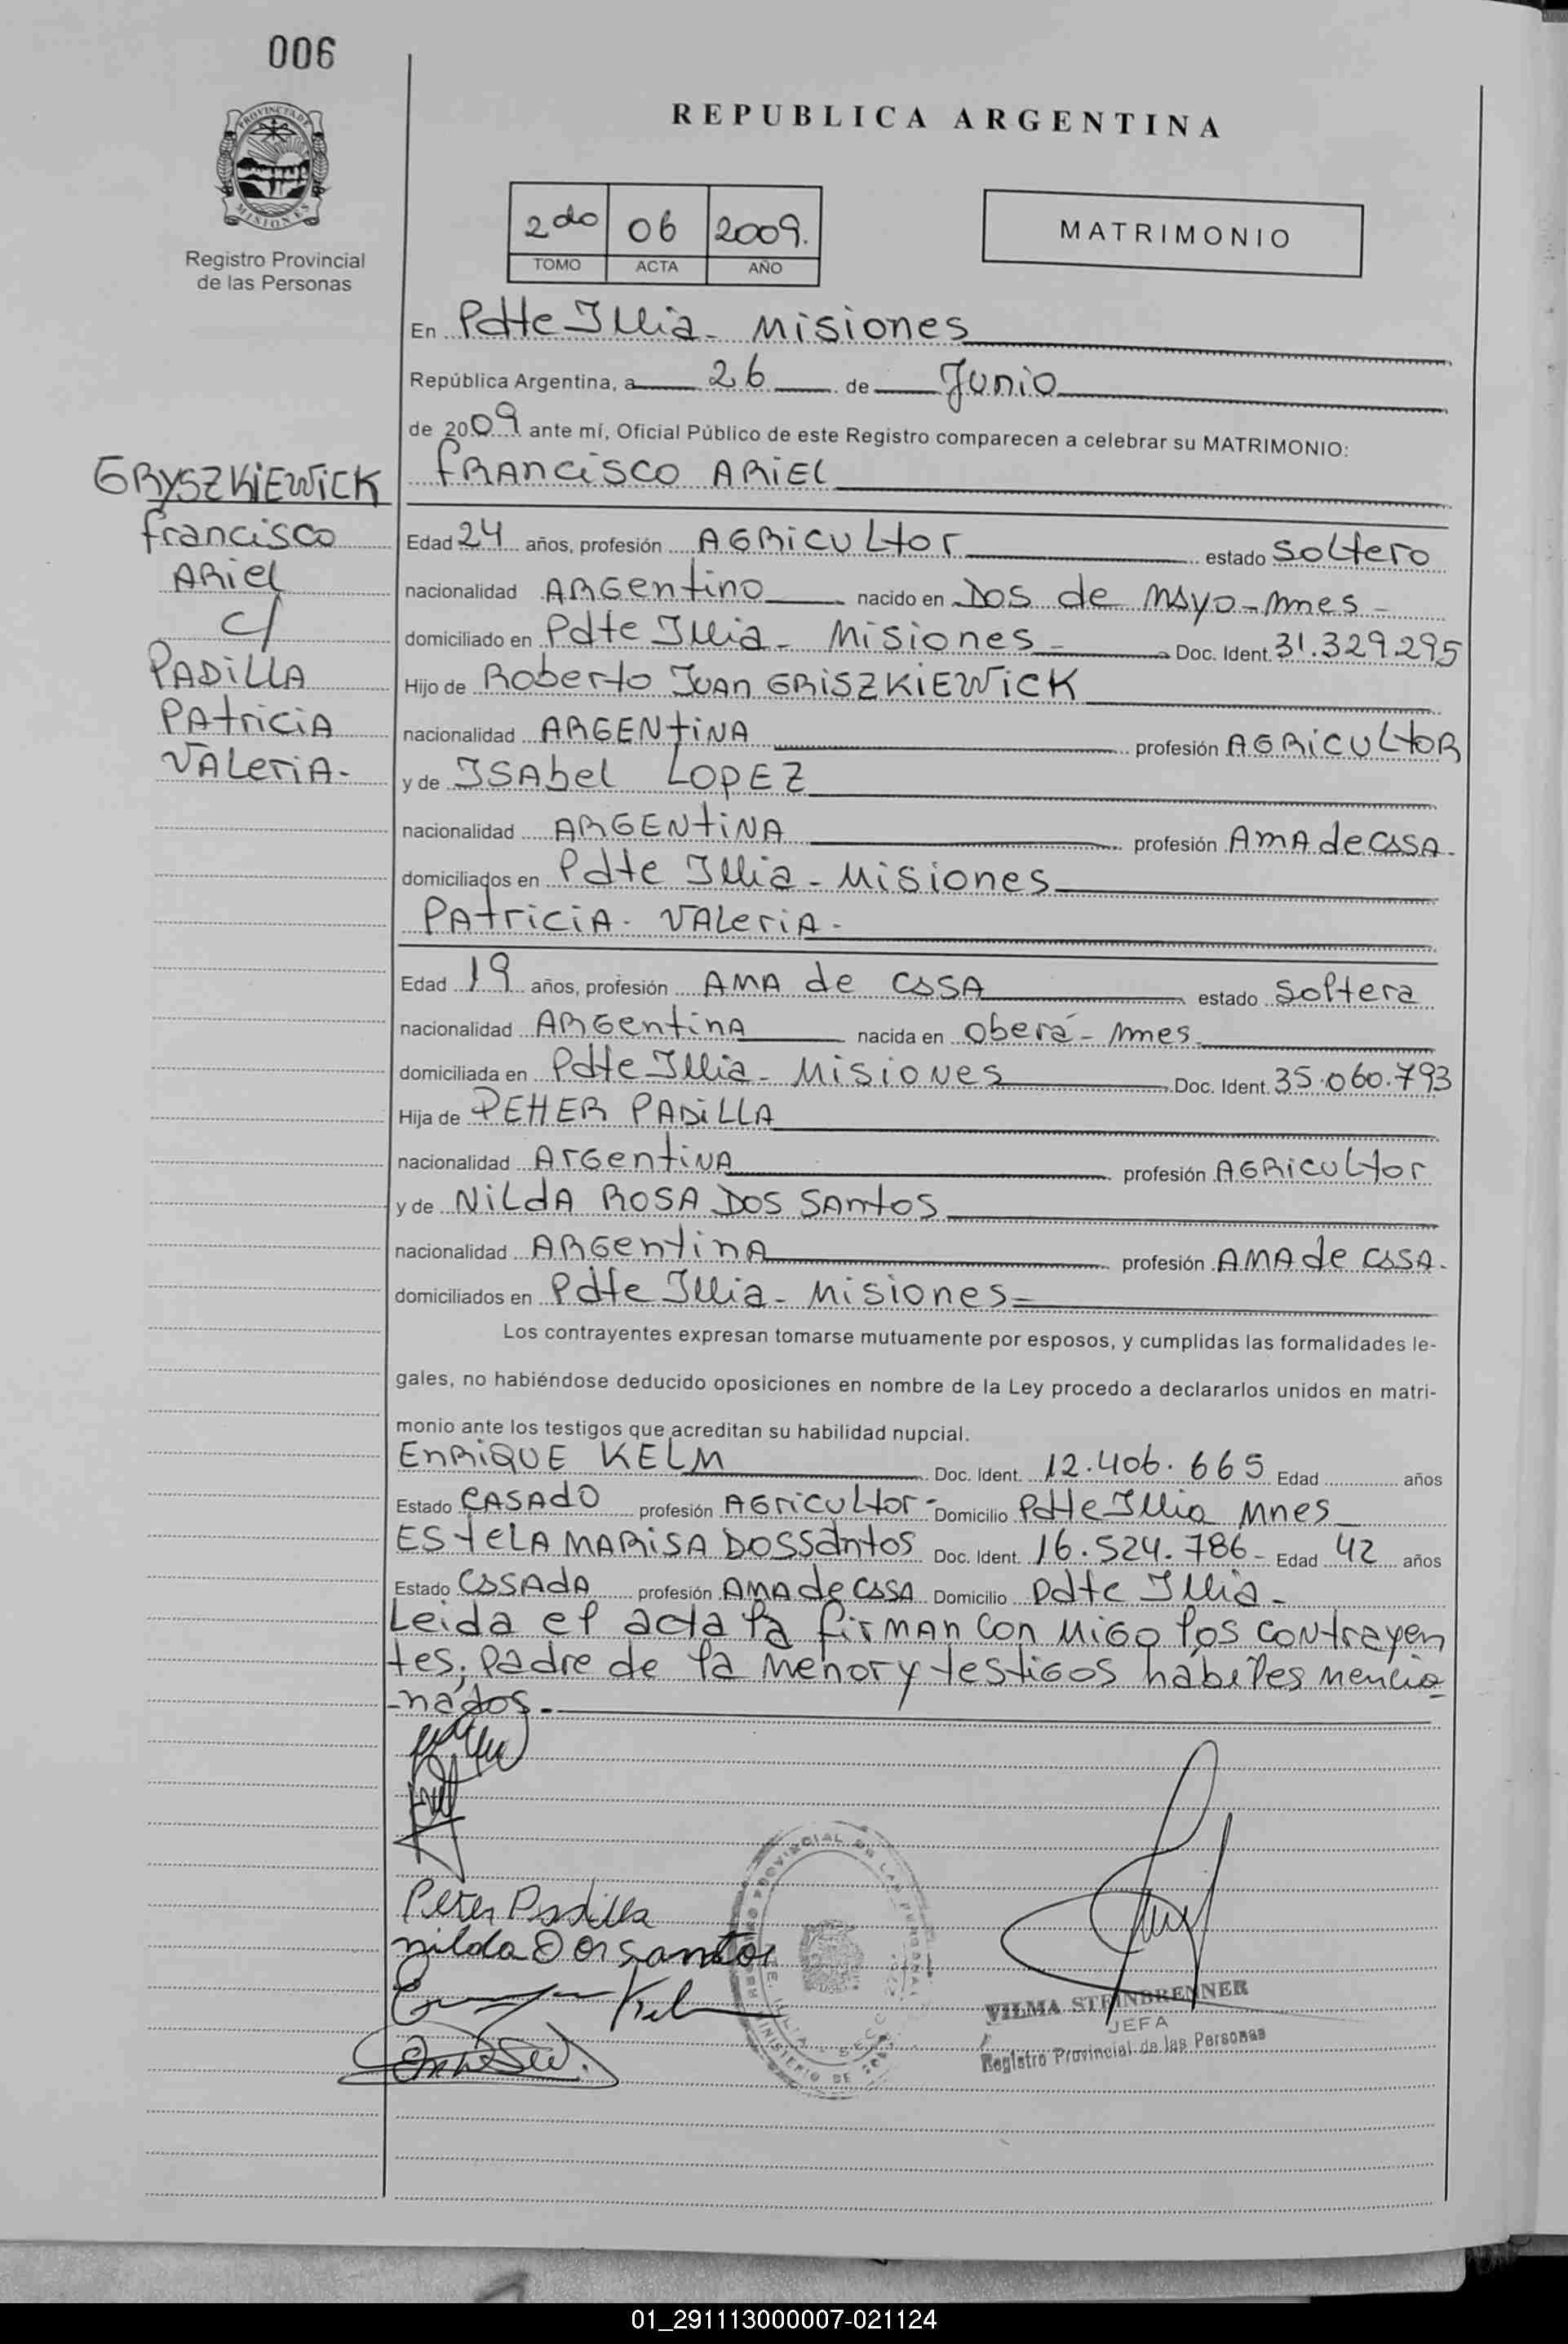 006
REPUBLICA ARGENTINA
PROVINCIA DE
MISIONES
Registro Provincial
de las Personas
2do 06 2009.
TOMO ACTA AÑO
MATRIMONIO
En Pdte Illia - Misiones
República Argentina, a 26 de Junio
de 2009 ante mí, Oficial Público de este Registro comparecen a celebrar su MATRIMONIO:
GRYSZKIEWICK
Francisco
ARiel
c/
PADILLA
PAtriciA
VALeriA-
FRANCISCO ARIEL
Edad 24 años, profesión AGRICULtor estado SOLtero
nacionalidad ARGentino nacido en DOS de MAyo-Mnes-
domiciliado en Pdte Illia - Misiones - Doc. Ident. 31.329.295
Hijo de Roberto JUAN GRISZKIEWICK
nacionalidad ARGENtiNA profesión AGRICULtOR
y de ISAbel LOPEZ
nacionalidad ARGENtiNA profesión AMA de CASA-
domiciliados en Pdte Illia - Misiones
PAtriciA- VALeriA-
Edad 19 años, profesión AMA de CASA estado Soltera
nacionalidad ARGentinA nacida en Oberá - Mnes
domiciliada en Pdte Illia - Misiones Doc. Ident. 35.060.793
Hija de PEHER PADILLA
nacionalidad ArGentiNA profesión AGRICULtor
y de NiLdA ROSA DOS SAntos
nacionalidad ARGentinA profesión AMA de CASA-
domiciliados en Pdte Illia - Misiones-
Los contrayentes expresan tomarse mutuamente por esposos, y cumplidas las formalidades le-
gales, no habiéndose deducido oposiciones en nombre de la Ley procedo a declararlos unidos en matri-
monio ante los testigos que acreditan su habilidad nupcial.
ENRIQUE KELM Doc. Ident. 12.406.665 Edad años
Estado CASAdO profesión AGricULtor- Domicilio Pdte Illia Mnes
EStELA MARISA DOSSantos Doc. Ident. 16.524.786- Edad 42 años
Estado CASAdA profesión AMA de CASA Domicilio Pdte Illia-
Leida el acta la firMAN Con MiGo los contrayen
tes, padre de la Menor y testiGos hábiles Mencio
-nados.-
Peter Padilla
nilda Dos santos
VILMA STEINBRENNER
JEFA
Registro Provincial de las Personas
01_291113000007-021124